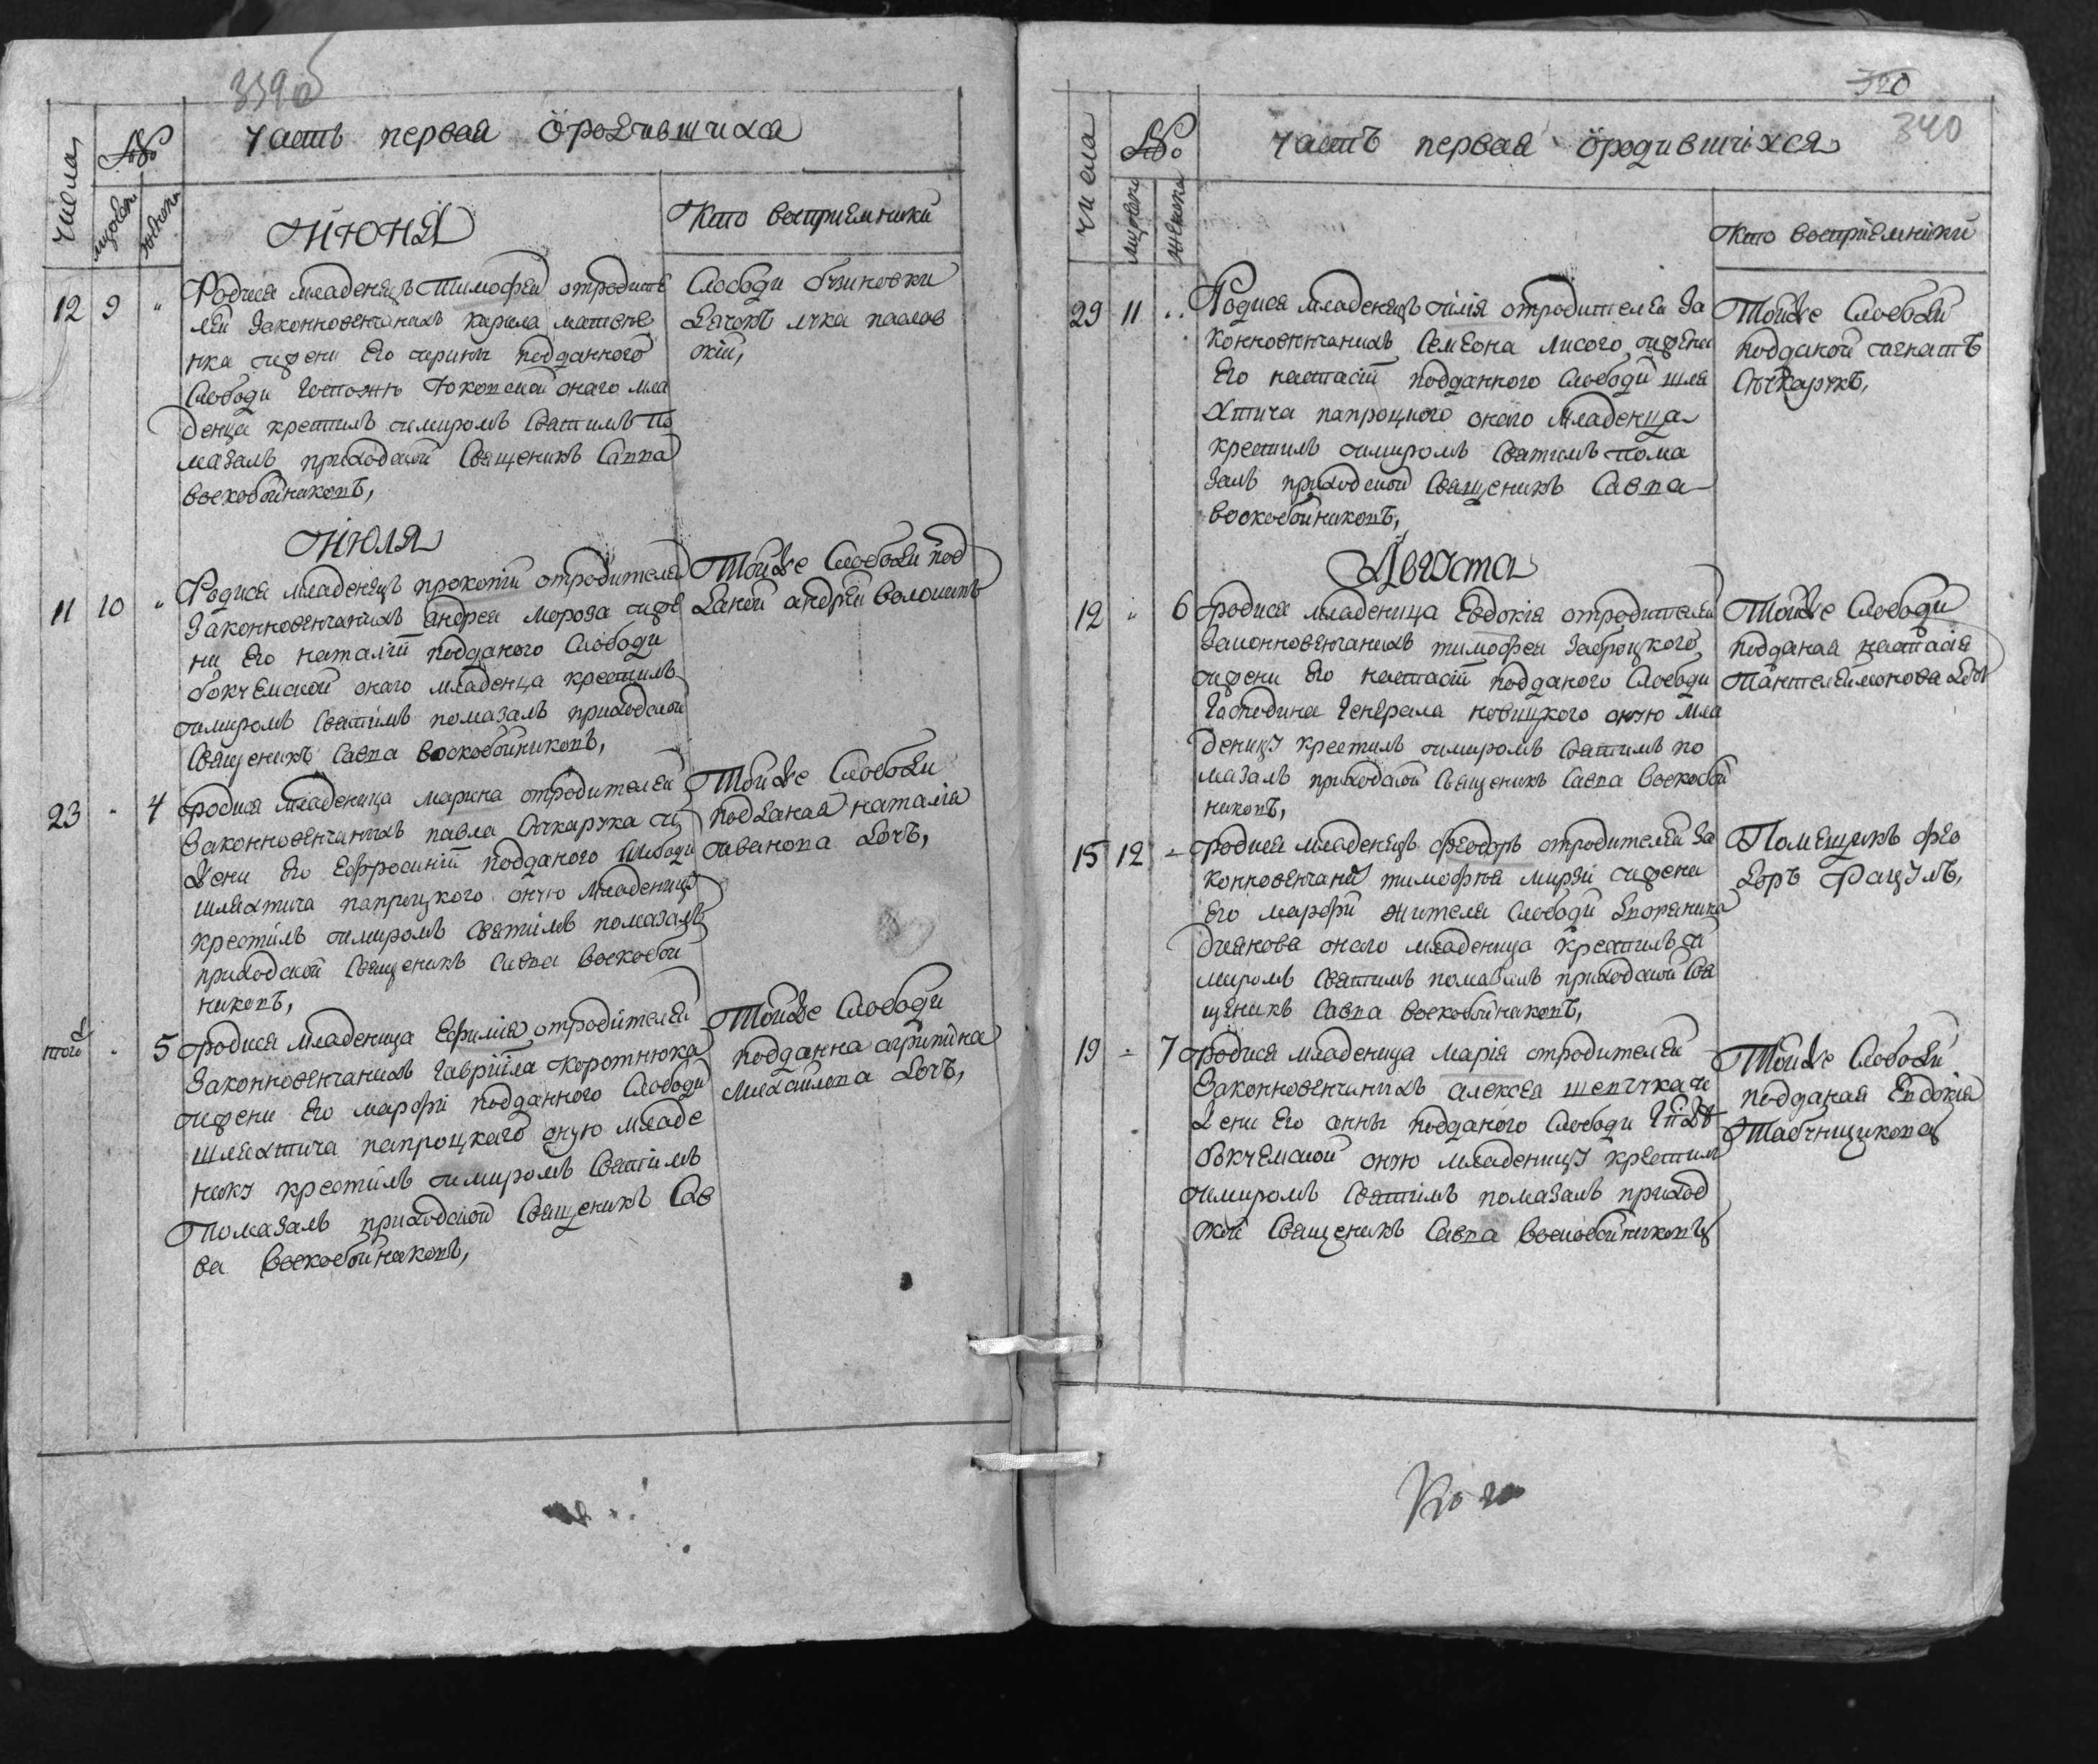 339 об
Числа
№
мужеска
женска
Часть первая ѡродившихся
Июня
Кто восприемники
12 9 "
Родися младенецъ Тимофей отродите
лей законновенчанихъ Карила Матвее
нка ижени его Ирины подданного
Слободи Госпожи
денца крестилъ имиромъ святимъ по
мазалъ приходской священикъ Савва
воскобойниковъ,
Слободи
дячокъ лука павлов
skій,
Июля
11 10 "
Родися младенецъ прокопій отродителей
Законновенчанихъ андрея мороза ижо
ни Его наталіи подданого Слободи
бокчемской онаго младенца крестилъ
имиромъ святимъ помазалъ приходской
Священикъ Савва воскобойниковъ,
Тойже Слободи под
даной андрей волошинъ
23 - 4
родися младеница марина отродителей
Законновенчанихъ павла Слюкарука и
жени его Ефросиніи подданого Слободи
шляхтича папроцкого оную младеницу
крестилъ имиромъ святимъ помазалъ
приходской священикъ Савва воскобой
никовъ,
Тойже Слободи
подданая наталія
иванова дочъ,
того - 5
родися младеница Ефимія отродителей
Законновенчанихъ гавріила коротнюка
ижени его марфи подданного Слободи
шляхтича папроцкаго оную младе
ницу крестилъ имиромъ святимъ
помазалъ приходской священикъ Сав
ва воскобойниковъ,
Тойже Слободи
подданна агрипина
михайлова дочъ,
320
340
числа
№
мужеска
женска
Часть первая ѡродившіхся
Кто воспріемники
29 11 "
Родися младенецъ илія отродителей за
конновенчанихъ Семеона лисого ижени
Его настасіи подданного Слободи шля
хтича папроцкого онаго младенца
крестилъ имиромъ святимъ пома
залъ приходской священикъ Савва
воскобойниковъ,
Тойже Слободи
подданой игнатъ
Слюкарукъ,
Августа
12 " 6
родися младеница Евдокія отродителей
Законновенчанихъ тимофея Заброцкого
ижени Его настасіи подданого Слободи
Господина Генерала новицкого оную мла
деницу крестилъ имиромъ святимъ по
мазалъ приходской священикъ Савва воскобой
никовъ,
Тойже Слободи
подданая настасія
Пантелеймонова доч
15 12 -
родися младенецъ феодоръ отродителей за
конновенчаних тимофея мирзи ижени
его марфи жителя Слободи дворянина
Диянова онаго младенца крестилъ и
миромъ святимъ помазалъ приходской свя
щеникъ Савва воскобойниковъ,
Помещикъ фео
доръ Рацулъ,
19 - 7
родися младеница марія отродителей
Законновенчанихъ алексея шевчука и
жени Его анны подданого Слободи
бокчемской оную младеницу крестил
имиромъ святимъ помазалъ приход
ской священикъ Савва воскобойниковъ
Тойже Слободи
подданая Евдокія
Табунщикова